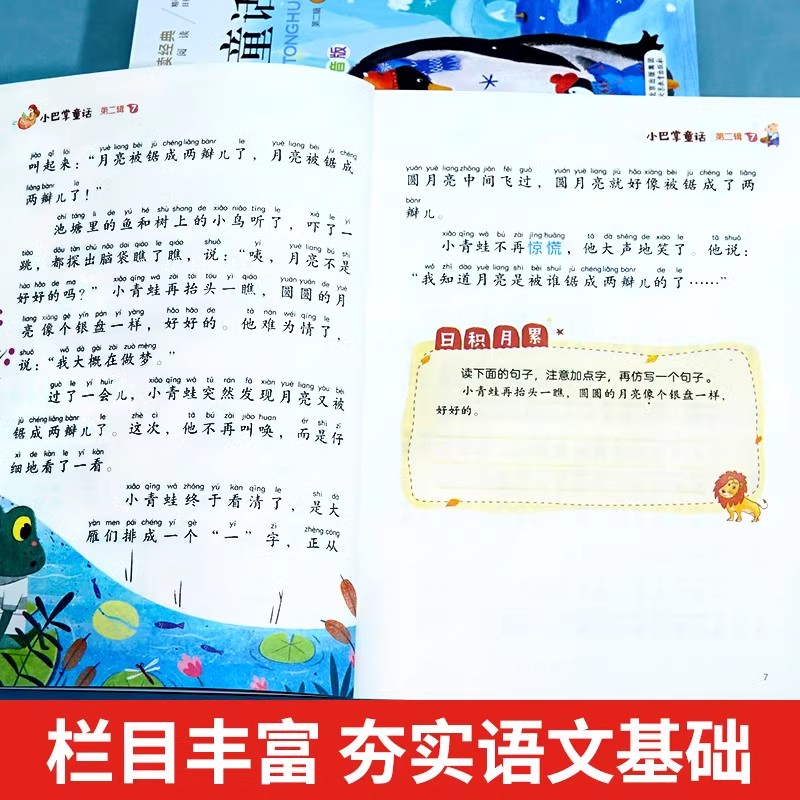 经典
阅读
童话
TONGHU
第二辑
音版
北京出版集团
北京教育出版社
小巴掌童话 第二辑 7
jiào qǐ lái yuè liang bèi jù chéng liǎng bànr le yuè liang bèi jù chéng
叫起来：“月亮被锯成两瓣儿了，月亮被锯成
liǎng bànr le
两瓣儿了！”
chí táng li de yú hé shù shang de xiǎo niǎo tīng le xià le yí
池塘里的鱼和树上的小鸟听了，吓了一
tiào dōu tàn chū nǎo dai qiáo le qiáo shuō yuè liang bú shì
跳，都探出脑袋瞧了瞧，说：“咦，月亮不是
hǎo hǎo de ma xiǎo qīng wā zài tái tóu yì qiáo yuán yuán de yuè
好好的吗？”小青蛙再抬头一瞧，圆圆的月
liang xiàng gè yín pán yí yàng hǎo hǎo de tā nán wéi qíng le
亮像个银盘一样，好好的。他难为情了，
shuō wǒ dà gài zài zuò mèng
说：“我大概在做梦。”
guò le yí huìr xiǎo qīng wā tū rán fā xiàn yuè liang yòu bèi
过了一会儿，小青蛙突然发现月亮又被
jù chéng liǎng bànr le zhè cì tā bú zài jiào huan ér shì zǐ
锯成两瓣儿了。这次，他不再叫唤，而是仔
xì de kàn le kàn
细地看了一看。
xiǎo qīng wā zhōng yú kàn qīng le shì dà
小青蛙终于看清了，是大
yàn men pái chéng yí gè yī zì zhèng cóng
雁们排成一个“一”字，正从
小巴掌童话 第二辑 7
yuán yuè liang zhōng jiān fēi guò yuán yuè liang jiù hǎo xiàng bèi jù chéng le liǎng
圆月亮中间飞过，圆月亮就好像被锯成了两
bànr
瓣儿。
xiǎo qīng wā bú zài jīng huāng tā dà shēng de xiào le tā shuō
小青蛙不再惊慌，他大声地笑了。他说：
wǒ zhī dào yuè liang shì bèi shuí jù chéng liǎng bànr de le
“我知道月亮是被谁锯成两瓣儿的了……”
日积月累
读下面的句子，注意加点字，再仿写一个句子。
小青蛙再抬头一瞧，圆圆的月亮像个银盘一样，
好好的。
7
栏目丰富 夯实语文基础